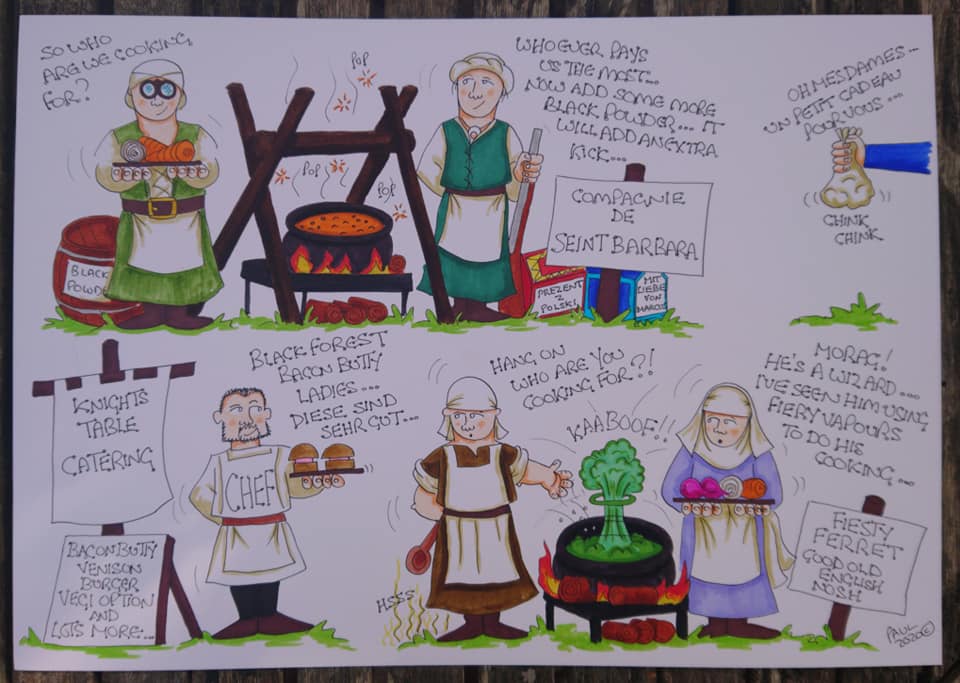 SO WHO
ARE WE COOKING
FOR?
POP
POP
POP
POP
WHO EVER PAYS
US THE MOST...
NOW ADD SOME MORE
BLACK POWDER... IT
WILL ADD AN EXTRA
KICK...
OH MES DAMES...
UN PETIT CADEAU
POUR VOUS...
CHINK
CHINK
BLACK
POWD
COMPAGNIE
DE
SEINT BARBARA
PREZENT
Z
POLSKI
MIT
LIEBE
VON
MARCUS
KNIGHTS
TABLE
CATERING
BACON BUTTY
VENISON
BURGER
VEGI OPTION
AND
LOTS MORE...
BLACK FOREST
BACON BUTTY
LADIES...
DIESE SIND
SEHR GUT...
CHEF
HANG ON
WHO ARE YOU
COOKING FOR?!
HSSS
KAABOOF!!
MORAG!
HE'S A WIZARD...
I'VE SEEN HIM USING
FIERY VAPOURS
TO DO HIS
COOKING...
FIESTY
FERRET
GOOD OLD
ENGLISH
NOSH
PAUL
2020©